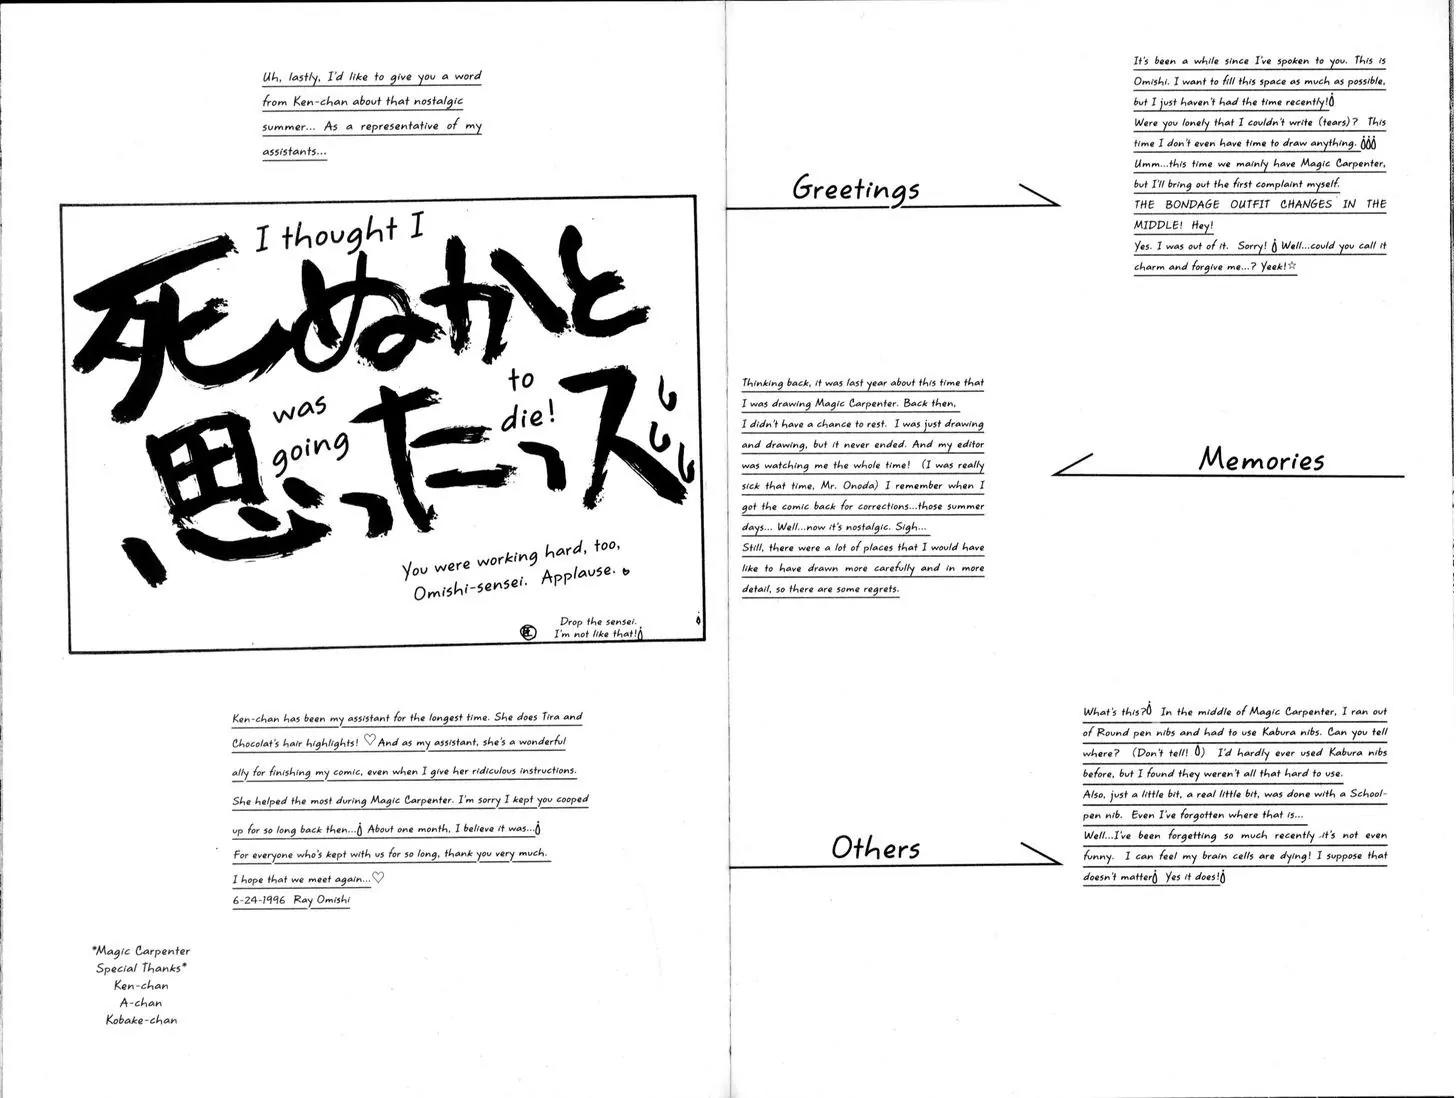 Greetings
It's been a while since I've spoken to you. This is
Omishi. I want to fill this space as much as possible,
but I just haven't had the time recently!
Were you lonely that I couldn't write (tears)? This
time I don't even have time to draw anything.
Umm...this time we mainly have Magic Carpenter,
but I'll bring out the first complaint myself.
THE BONDAGE OUTFIT CHANGES IN THE
MIDDLE! Hey!
Yes. I was out of it. Sorry! Well...could you call it
charm and forgive me...? Yeek!☆
Memories
Thinking back, it was last year about this time that
I was drawing Magic Carpenter. Back then,
I didn't have a chance to rest. I was just drawing
and drawing, but it never ended. And my editor
was watching me the whole time! (I was really
sick that time, Mr. Onoda) I remember when I
got the comic back for corrections...those summer
days... Well...now it's nostalgic. Sigh...
Still, there were a lot of places that I would have
like to have drawn more carefully and in more
detail, so there are some regrets.
Others
What's this? In the middle of Magic Carpenter, I ran out
of Round pen nibs and had to use Kabura nibs. Can you tell
where? (Don't tell!) I'd hardly ever used Kabura nibs
before, but I found they weren't all that hard to use.
Also, just a little bit, a real little bit, was done with a School-
pen nib. Even I've forgotten where that is...
Well...I've been forgetting so much recently it's not even
funny. I can feel my brain cells are dying! I suppose that
doesn't matter Yes it does!
Uh, lastly, I'd like to give you a word
from Ken-chan about that nostalgic
summer... As a representative of my
assistants...
I thought I
死ぬかと
was
going
to
die!
思ったっス
You were working hard, too,
Omishi-sensei. Applause.
Drop the sensei.
I'm not like that!
Ken-chan has been my assistant for the longest time. She does Tira and
Chocolat's hair highlights! ♡And as my assistant, she's a wonderful
ally for finishing my comic, even when I give her ridiculous instructions.
She helped the most during Magic Carpenter. I'm sorry I kept you cooped
up for so long back then... About one month, I believe it was...
For everyone who's kept with us for so long, thank you very much.
I hope that we meet again...♡
6-24-1996 Ray Omishi
*Magic Carpenter
Special Thanks*
Ken-chan
A-chan
Kobake-chan